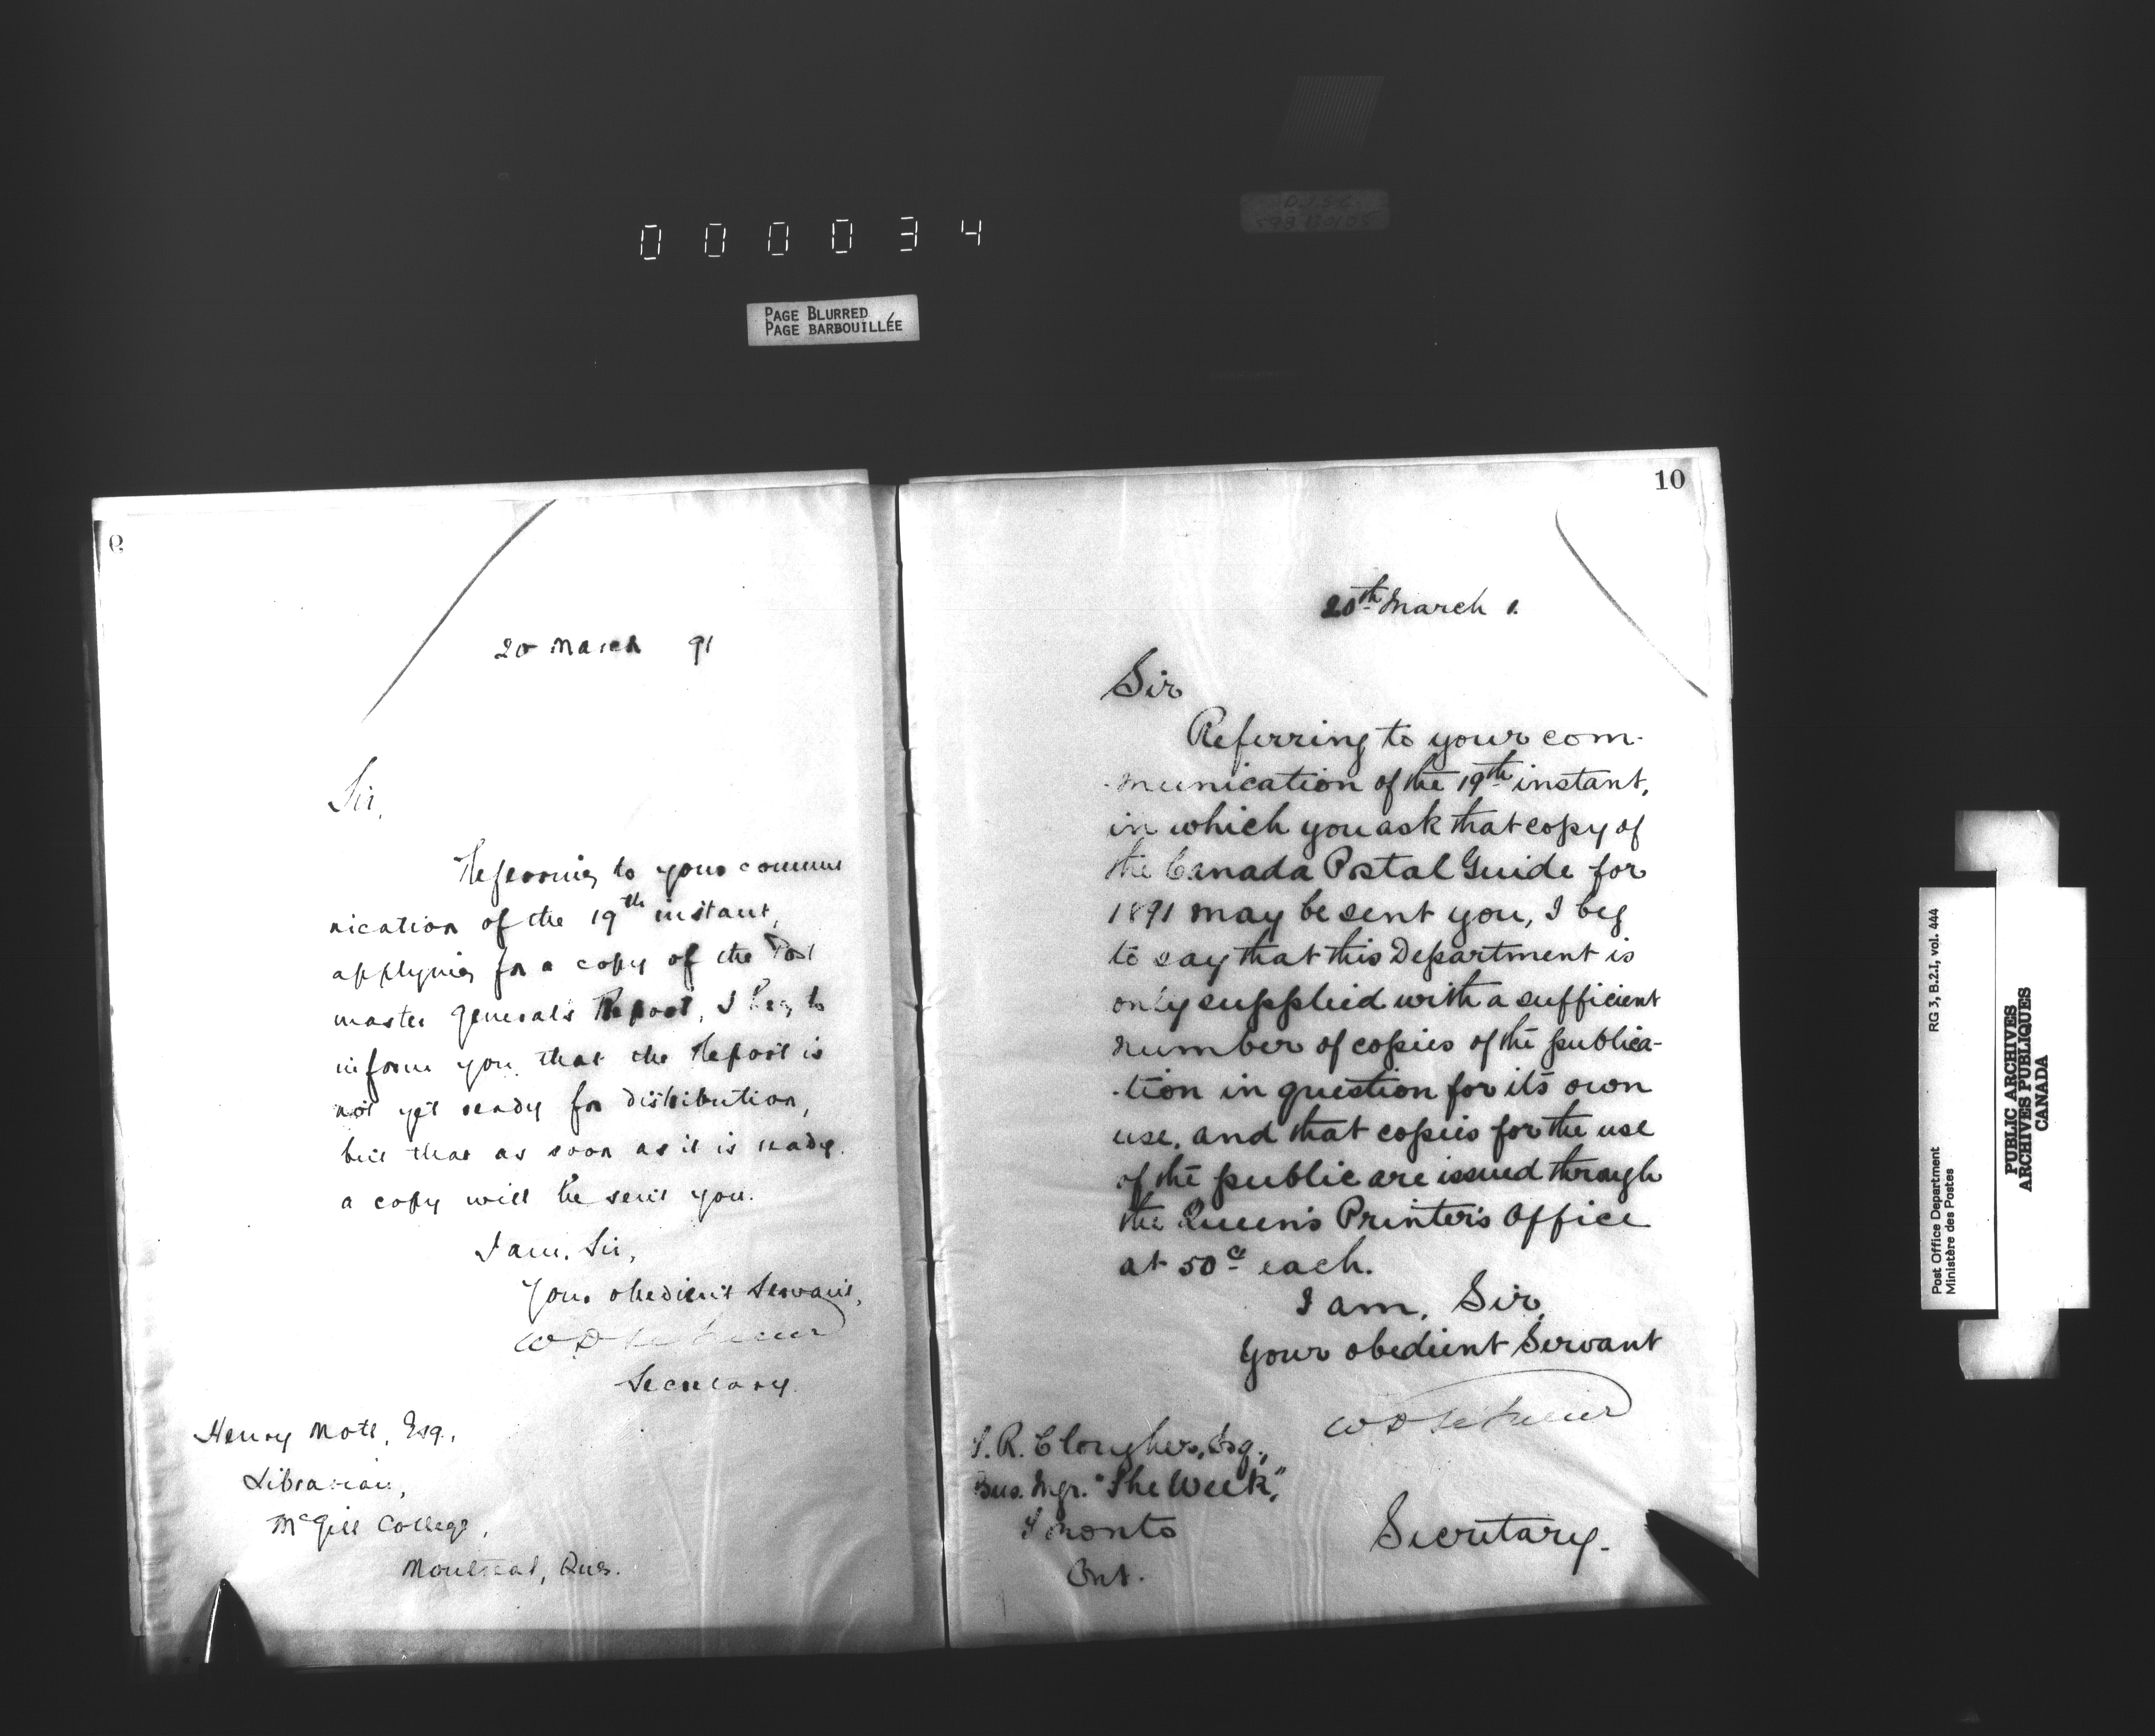 000034
PAGE BLURRED
PAGE BARBOUILLÉE
9
20 March 91
Sir,
Referring to your commu
nication of the 19th instant,
applying for a copy of the Post
master General's Report, I beg to
inform you that the Report is
not yet ready for distribution,
but that as soon as it is ready
a copy will be sent you.
I am, Sir,
Your obedient Servant,
W D LeSueur
Secretary.
Henry Mott, Esq.,
Librarian,
McGill College,
Montreal, Que.
10
20th March 1.
Sir
Referring to your com-
-munication of the 19th instant,
in which you ask that copy of
the Canada Postal Guide for
1891 may be sent you, I beg
to say that this Department is
only supplied with a sufficient
number of copies of the publica-
-tion in question for its own
use, and that copies for the use
of the public are issued through
the Queen's Printer's Office
at 50c each.
I am, Sir,
Your obedient Servant
W D LeSueur
Secretary.
T. R. Clougher, Esq.,
Bus. Mgr. "The Week,"
Toronto
Ont.
Post Office Department
Ministère des Postes
RG 3, B.2.I, vol. 444
PUBLIC ARCHIVES
ARCHIVES PUBLIQUES
CANADA